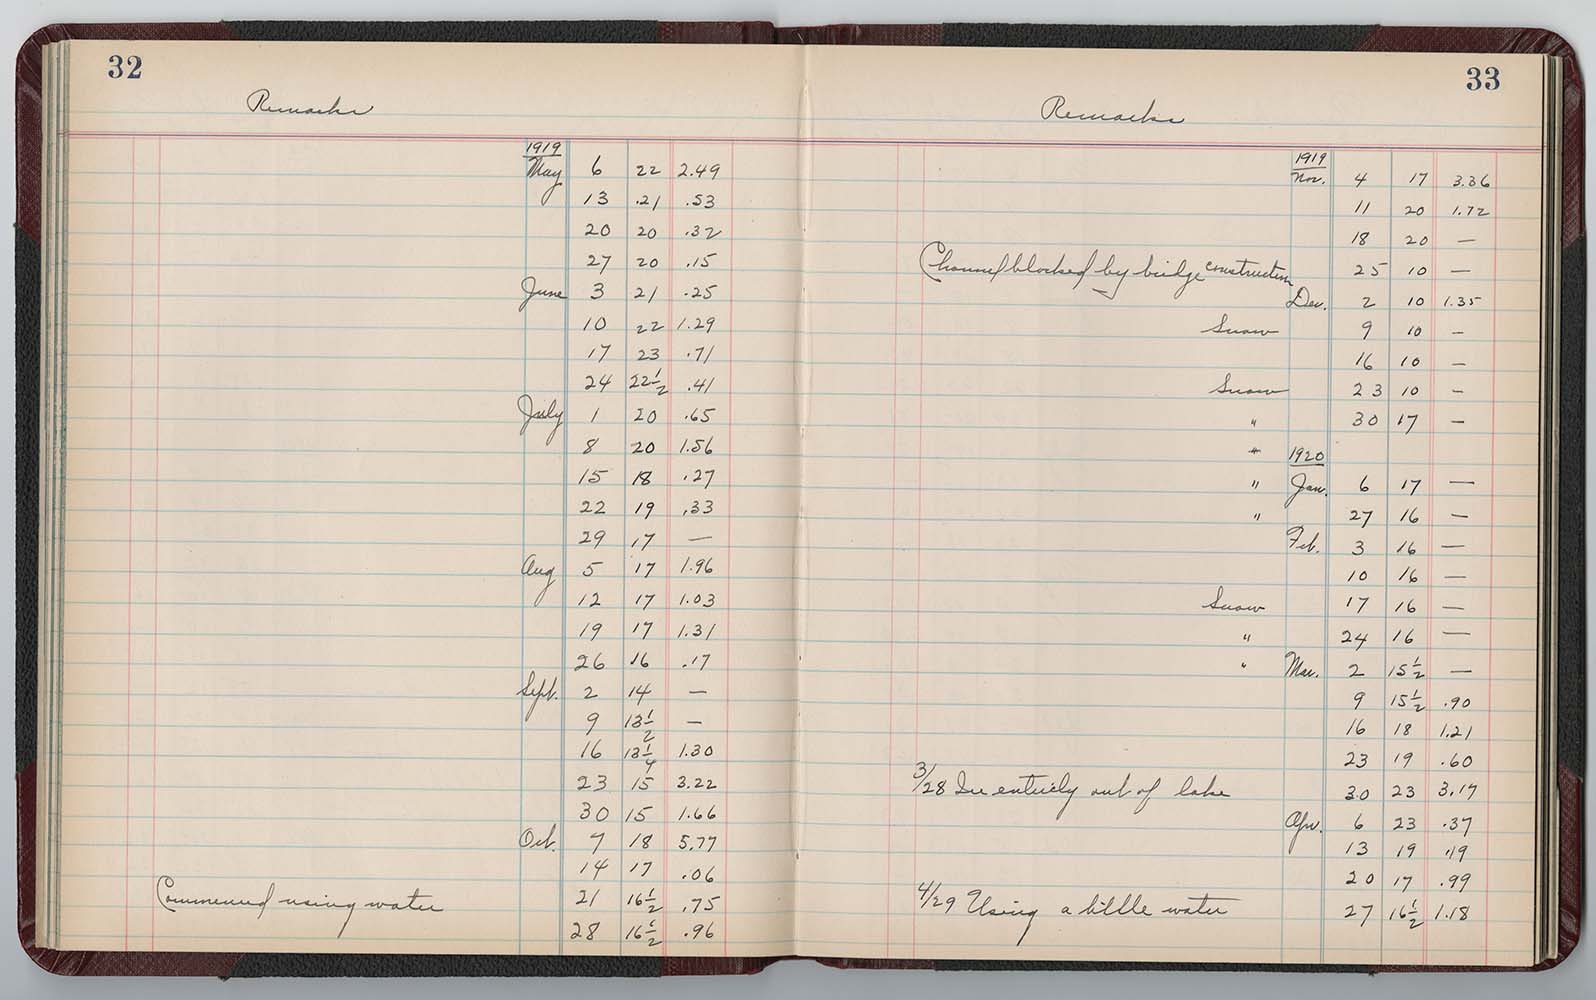 32
Remarks
1919
May 6 22 2.49
13 .21 .53
20 20 .32
27 20 .15
June 3 21 .25
10 22 1.29
17 23 .71
24 22 1/2 .41
July 1 20 .65
8 20 1.56
15 18 .27
22 19 .33
29 17 —
Aug 5 17 1.96
12 17 1.03
19 17 1.31
26 16 .17
Sept. 2 14 —
9 13 1/2 —
16 13 1/4 1.30
23 15 3.22
30 15 1.66
Oct. 7 18 5.77
14 17 .06
Commenced using water 21 16 1/2 .75
28 16 1/2 .96
33
Remarks
1919
Nov. 4 17 3.36
11 20 1.72
18 20 —
Channel blocked by bridge construction 25 10 —
Dec. 2 10 1.35
Snow 9 10 —
16 10 —
Snow 23 10 —
" 30 17 —
" 1920
" Jan. 6 17 —
" 27 16 —
Feb. 3 16 —
10 16 —
Snow 17 16 —
" 24 16 —
" Mar. 2 15 1/2 —
9 15 1/2 .90
16 18 1.21
23 19 .60
3/28 Ice entirely out of lake 30 23 3.17
Apr. 6 23 .37
13 19 .19
20 17 .99
4/29 Using a little water 27 16 1/2 1.18